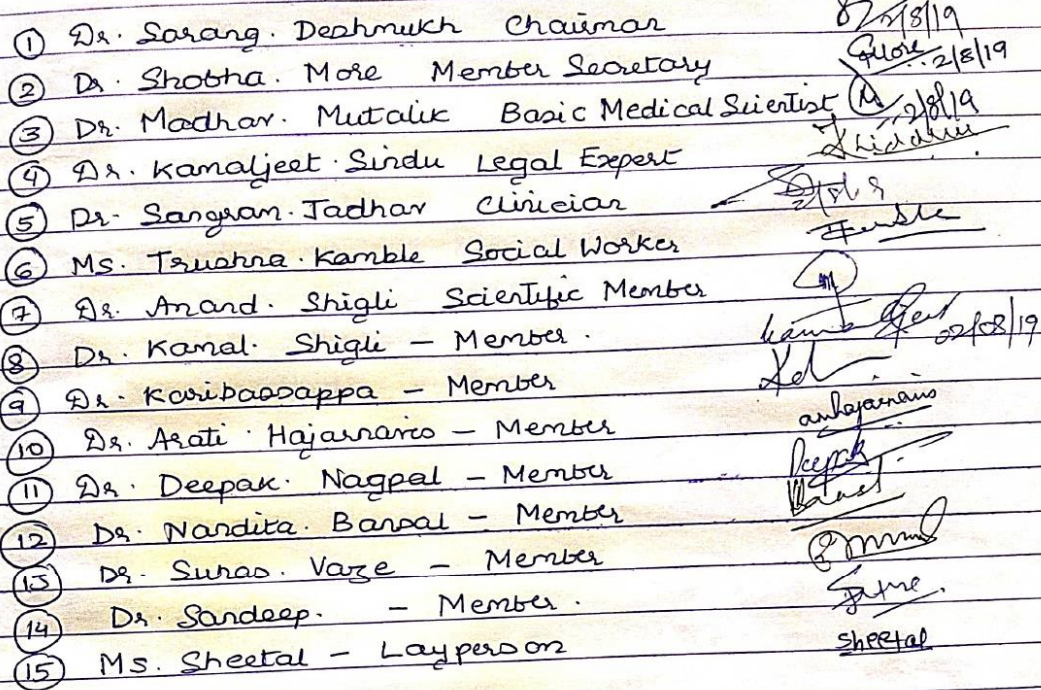 ① Dr. Sarang. Deshmukh Chairman 2/8/19
② Dr. Shobha. More Member Secretary Smore 2/8/19
③ Dr. Madhav. Mutalik Basic Medical Scientist 2/8/19
④ Dr. Kamaljeet. Sindu Legal Expert
⑤ Dr. Sangram. Jadhav Clinician
⑥ Ms. Trushna. Kamble Social Worker
⑦ Dr. Anand. Shigli Scientific Member
⑧ Dr. Kamal. Shigli – Member. 02/08/19
⑨ Dr. Karibassappa – Member
⑩ Dr. Arati. Hajarnavis – Member
⑪ Dr. Deepak. Nagpal – Member Deepak
⑫ Dr. Nandita. Bansal – Member
⑬ Dr. Suhas. Vaze – Member
⑭ Dr. Sandeep. – Member.
⑮ Ms. Sheetal – Layperson Sheetal